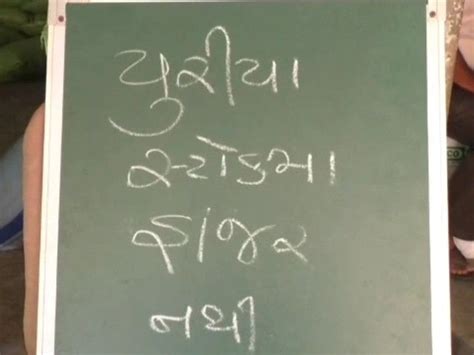 યુરીયા
સ્ટોકમા
હાજર
નથી